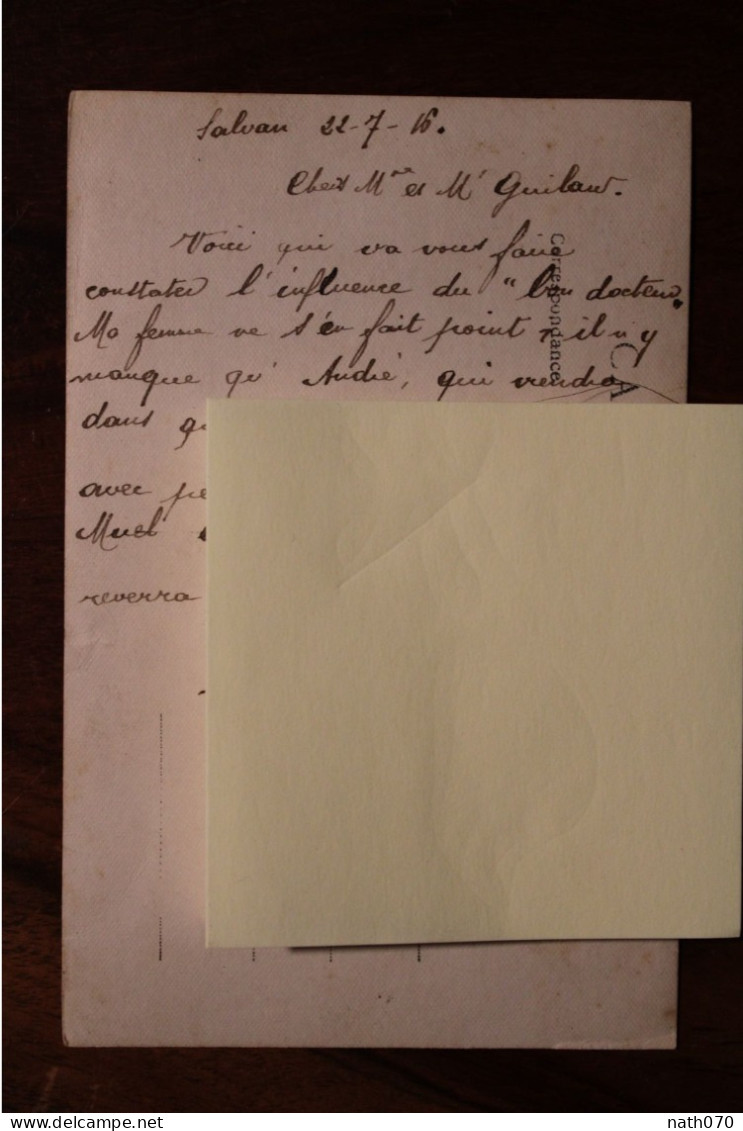 Salvan 22-7-16.
Chers Mme et Mr Guilaud.
Voici qui va vous faire
constater l'influence du "bon docteur.
Ma femme ne s'en fait point, il n'y
manque qu'André, qui viendra
dans
avec
Muel
reverra
Correspondance
CA
nath070
delcampe.net